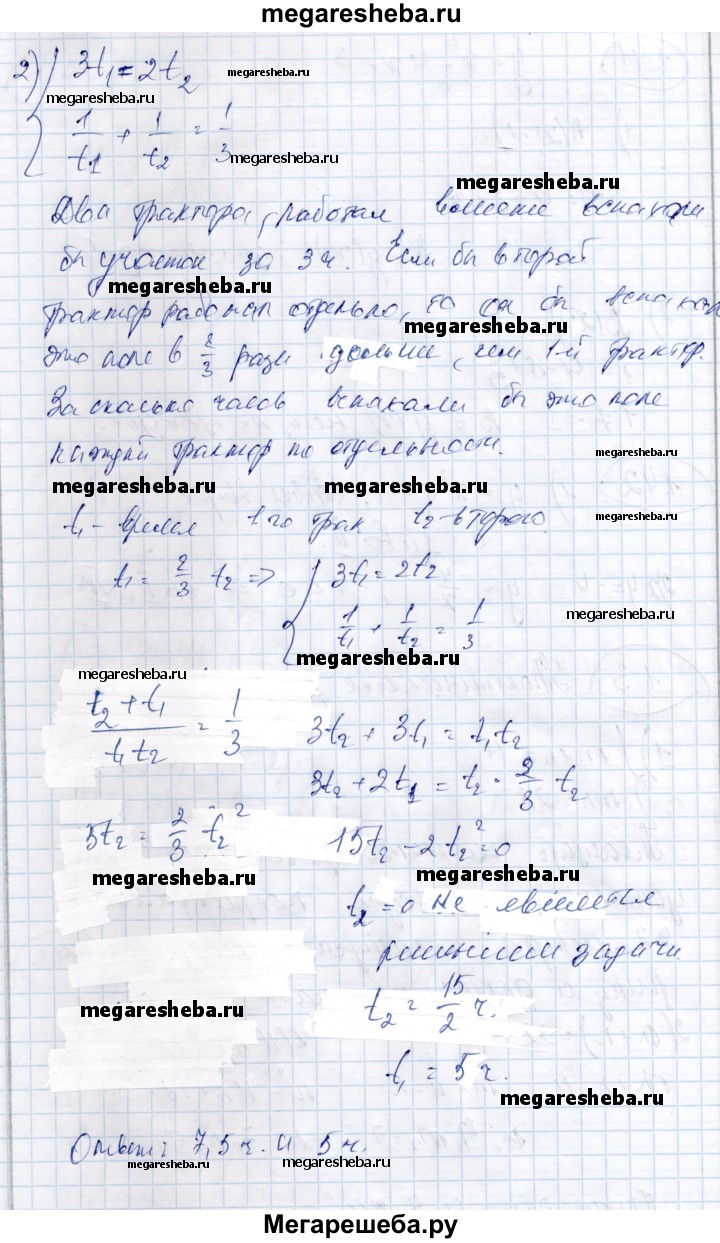 megaresheba.ru
2) { 3t₁ = 2t₂
megaresheba.ru
megaresheba.ru
1/t1 + 1/t2 = 1/3
megaresheba.ru
megaresheba.ru
Два трактора, работая вспахали
бы участок за 3 ч. Если бы второй
megaresheba.ru
трактор работал отдельно, то он бы
megaresheba.ru
это поле в 2/3 раза дольше, чем 1-й трактор.
За сколько часов вспахали бы это поле
каждый трактор по отдельности.
megaresheba.ru
megaresheba.ru
megaresheba.ru
t₁ - время 1го трак t₂ - второго.
megaresheba.ru
t₁ = 2/3 t₂ => { 3t₁ = 2t₂
megaresheba.ru
1/t₁ + 1/t₂ = 1/3
megaresheba.ru
megaresheba.ru
(t₂ + t₁)/(t₁t₂) = 1/3
3t₂ + 3t₁ = t₁t₂
3t₂ + 2t₁ = t₂ · 2/3 t₂
5t₂ = 2/3 t₂²
15t₂ - 2t₂² = 0
megaresheba.ru
megaresheba.ru
t₂ = 0 не является
решением задачи.
megaresheba.ru
t₂ = 15/2 ч.
t₁ = 5 ч.
megaresheba.ru
Ответ: 7,5 ч. и 5 ч.
megaresheba.ru
megaresheba.ru
Мегарешеба.ру